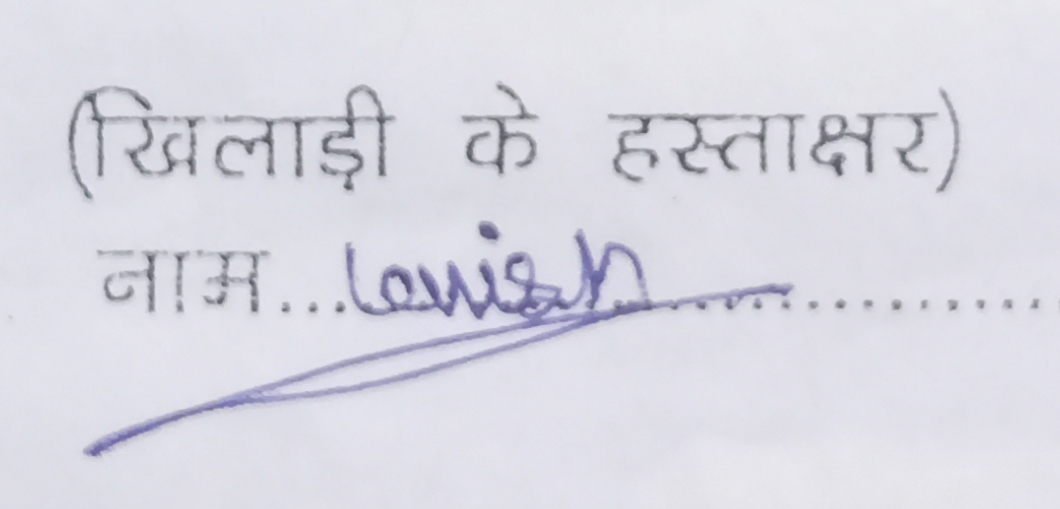 (खिलाड़ी के हस्ताक्षर)
नाम... Lavish ............